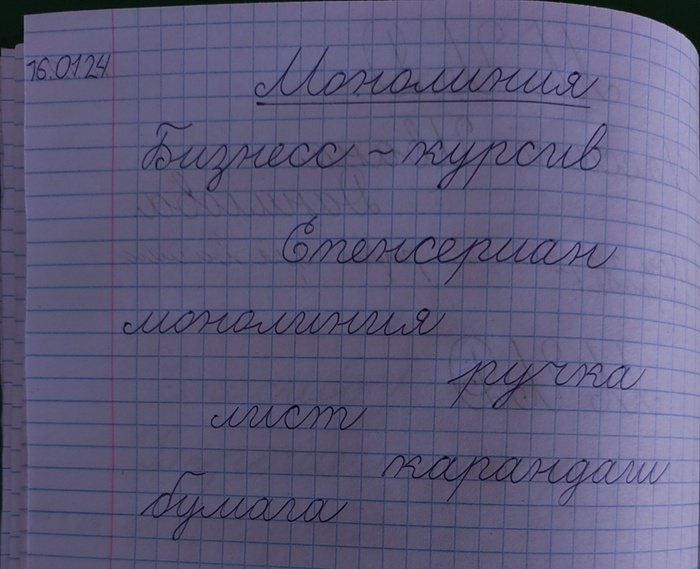 16.01.24
Монолиния
Бизнесс-курсив
Спенсериан
монолиния
ручка
лист
карандаш
бумага